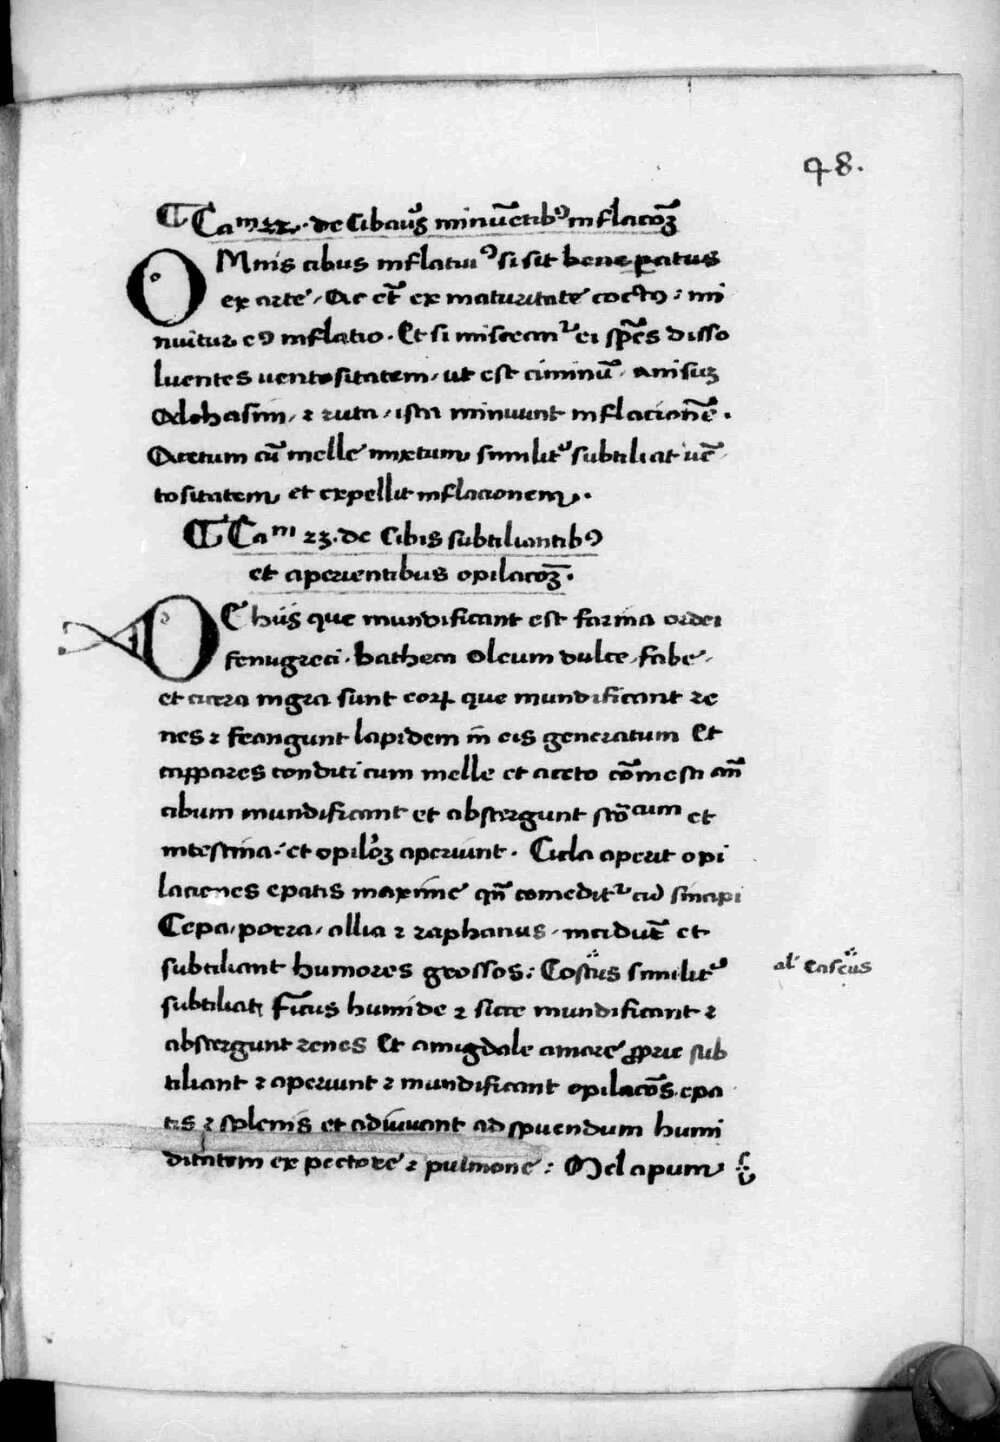 48.
¶ Cam 22. de cibariis minuētibꝰ inflacoꝫ
OMnis cibus inflatiuꝰ si sit bene ꝑatus
ex arte, Ac et̄ ex maturitate coctꝰ: mi
nuitur eꝰ inflatio. Et si misceanᷣ ei spēs disso
luentes ventositatem, ut est ciminū, anisuꝫ
Adchasim, ⁊ ruta, ista minuunt inflacionē.
Acetum cū melle mixtum similitᷣ subtiliat uē
tositatem et expellit inflacionem.
¶ Cam 23. de Cibis subtiliantibꝰ
et aperientibus opilacoꝫ.
DE hiis que mundificant est farina ordei
fenugreci. bathera oleum dulce, fabe,
et cicera nigra sunt eoꝝ que mundificant re
nes ⁊ frangunt lapidem in eis generatum Et
cappares conditi cum melle et aceto cōmesti añ
cibum mundificant et abstergunt stōcum et
intestina: et opilōꝫ aperiunt. Cicla aperit opi
laciones epatis maxime qñ comeditᷣ cū sinapi
Cepa, porra, allia ⁊ raphanus, incidūt et
subtiliant humores grossos: Costus similitᷣ
al' Caseus
subtiliat, ficus humide ⁊ sicce mundificant ⁊
abstergunt renes Et amigdale amare ꝓprie sub
tiliant ⁊ aperiunt ⁊ mundificant opilacōs epa
tis ⁊ splenis et adiuuant ad spuendum humi
ditatem ex pectore ⁊ pulmone: Mel apum